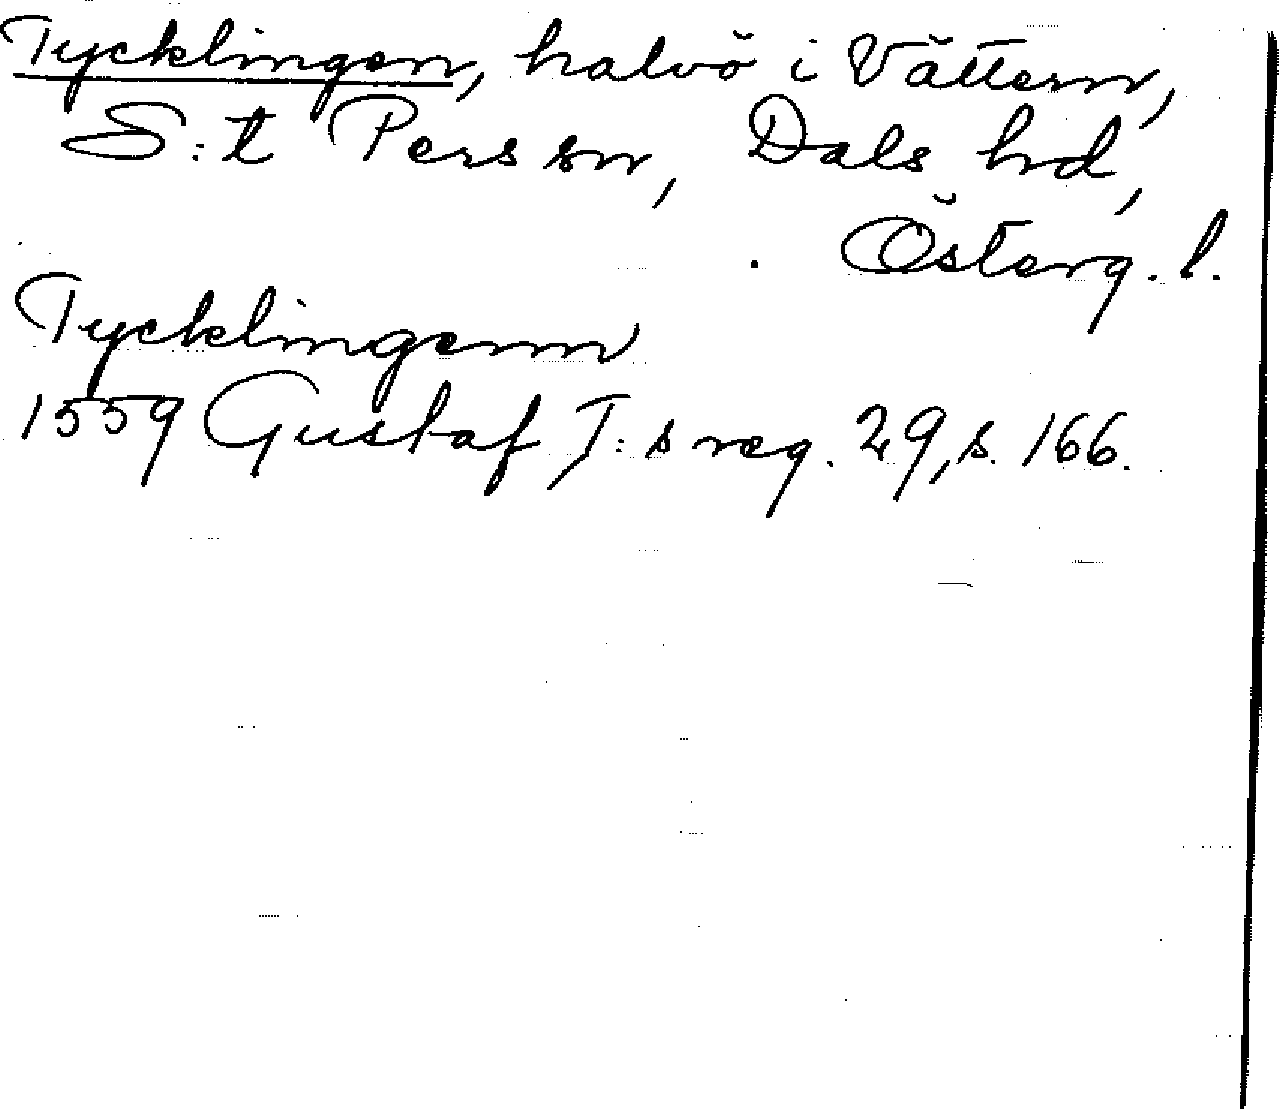 Tycklingen, halvö i Vättern,
S:t Pers sn, Dals hd,
Österg. l.
Tycklingenn
1559 Gustaf I:s reg. 29, s. 166.